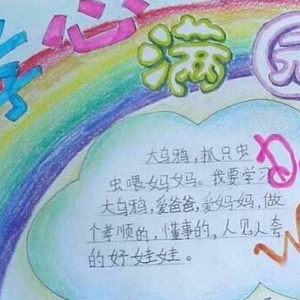 孝心满园
大乌鸦，扒只虫
虫喂妈妈。我要学习
大乌鸦，爱爸爸，爱妈妈，做
个孝顺的，懂事的，人见人夸
的好娃娃。